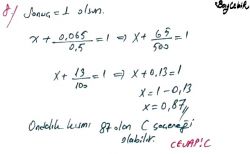 Baycebir
8) Sonuç = 1 olsun.
x + 0,065/0,5 = 1 ⇒ x + 65/500 = 1
x + 13/100 = 1 ⇒ x + 0,13 = 1
x = 1 - 0,13
x = 0,87
Ondalık kısmı 87 olan C seçeneği
olabilir.
CEVAP: C